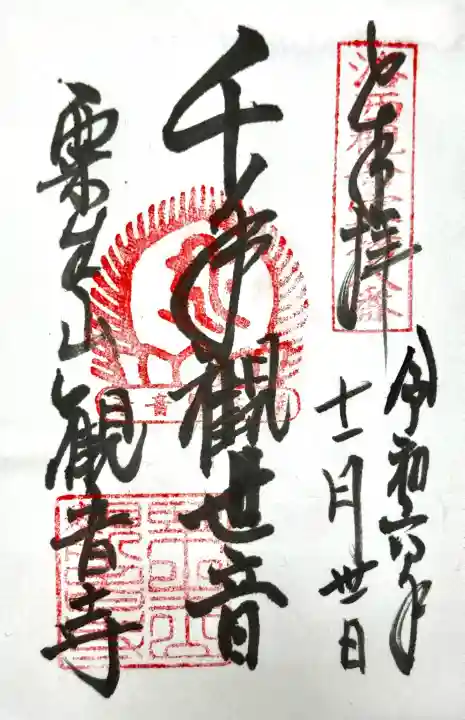 奉拝
令和六年
十一月丗日
千手觀世音
粟生山観音寺